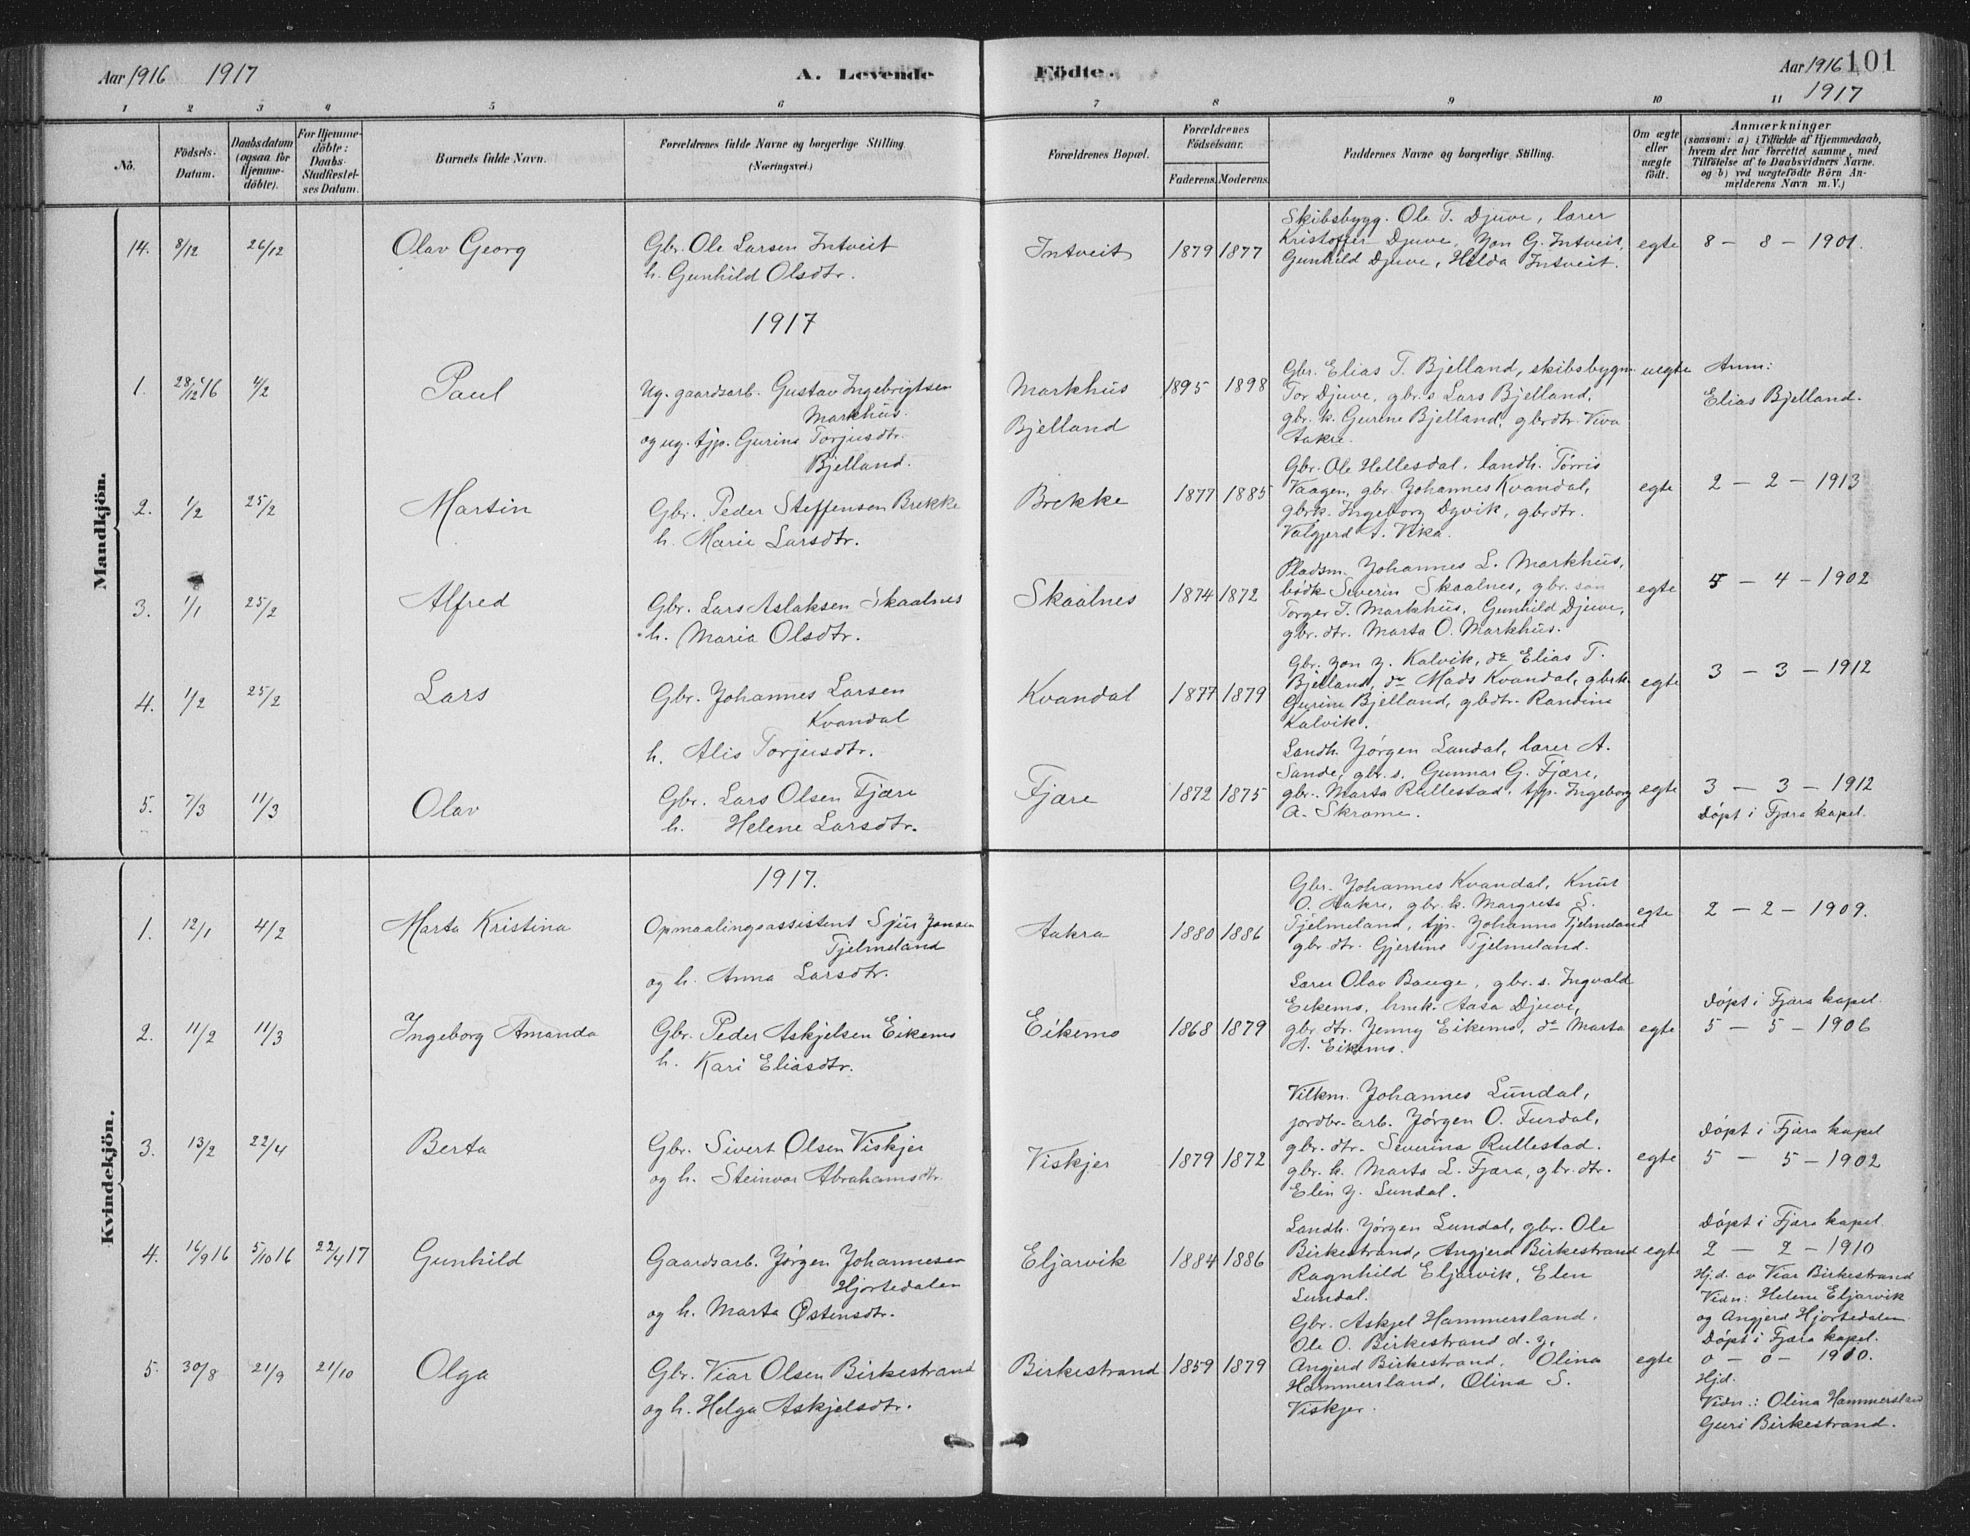 Aar 1916 1917
A. Levende Födte.
Aar 1916 101
1917
1 2 3 4 5 6 7 8 9 10 11
No.
Födsels-Datum.
Daabsdatum (ogsaa for Hjemme-döbte).
For Hjemme-döbte: Daabs-Stadfæstelses Datum.
Barnets fulde Navn.
Forældrenes fulde Navne og borgerlige Stilling. (Næringsvei.)
Forældrenes Bopæl.
Forældrenes Födselsaar.
Faderens. Moderens.
Faddernes Navne og borgerlige Stilling.
Om ægte eller uægte födt.
Anmærkninger
(saasom: a) i Tilfælde af Hjemmedaab, hvem der har forrettet samme, med Tilföielse af to Daabsvidners Navne, og b) ved uægtefödte Börn Anmelderens Navn m. V.)
Mandkjön.
14. 8/12 26/12 Olav Georg
Gbr. Ole Larsen Intveit
h. Gunhild Olsdtr.
Intveit 1879 1877
Skibsbygg. Ole T. Djuve, lærer
Kristoffer Djuve, Jon G. Intveit,
Gunhild Djuve, Hilda Intveit.
egte 8 - 8 - 1901.
1917
1. 28/12 16 4/2 Paul
Ug. gaardsarb. Gustav Ingebrigtsen
Markhus
og ug. tjp. Gurine Torjusdtr.
Bjelland.
Markhus
Bjelland
1895 1898
Gbr. Elias T. Bjelland, skibsbygm
Tor Djuve, gbr. s Lars Bjelland,
gbr. k. Gurine Bjelland, gbrdtr. Viva
Aakre.
uegte Anm:
Elias Bjelland.
2. 1/2 25/2 Martin
Gbr. Peder Steffensen Brekke
h. Marie Larsdtr.
Brekke 1877 1885
Gbr. Ole Hellesdal, landh. Tørris
Vaagen, gbr. Johannes Kvandal,
gbrk. Ingeborg Dyvik, gbrdtr.
Valgjerd A. Vika.
egte 2 - 2 - 1913
3. 1/1 25/2 Alfred
Gbr. Lars Aslaksen Skaalnes
h. Maria Olsdtr.
Skaalnes 1874 1872
Pladsm. Johannes L. Markhus,
bødk. Severin Skaalnes, gbr. søn
Torger J. Markhus, Gunhild Djuve,
gbr. dtr. Marta O. Markhus.
egte 5 - 4 - 1902
4. 1/2 25/2 Lars
Gbr. Johannes Larsen
Kvandal
h. Alis Torjusdtr.
Kvandal 1877 1879
Gbr. Jon J. Kalvik, do Elias T.
Bjelland, do Mads Kvandal, gbrk.
Gurine Bjelland, gbdtr. Randina
Kalvik.
egte 3 - 3 - 1912
5. 7/3 11/3 Olav
Gbr. Lars Olsen Fjære
h. Helene Larsdtr.
Fjære 1872 1875
Landh. Jørgen Lundal, lærer A.
Sande, gbr. s. Gunnar G. Fjære,
gbr. Marta Rullestad, tjp. Ingeborg
A. Skromme.
egte 3 - 3 - 1912
Døpt i Fjæra kapel.
Kvindekjön.
1917.
1. 12/1 4/2 Marta Kristina
Opmaalingsassistent Sjur Jansen
Tjelmeland
og h. Anna Larsdtr.
Aakra 1880 1886
Gbr. Johannes Kvandal, Knut
O. Aakre, gbr. k. Margreta S.
Tjelmeland, tjp. Johanna Tjelmeland
gbr dtr. Gjertine Tjelmeland.
egte 2 - 2 - 1909.
2. 11/2 11/3 Ingeborg Amanda
Gbr. Peder Askjelsen Eikemo
h. Kari Eliasdtr.
Eikemo 1868 1879
Lærer Olav Bauge, gbr. s. Ingvald
Eikemo, hmk. Aasa Djuve,
gbr. dtr. Jenny Eikemo, do Marta
A. Eikemo.
egte Døpt i Fjæra kapel.
5 - 5 - 1906
3. 13/2 22/4 Berta
Gbr. Sivert Olsen Viskjer
og h. Steinvor Abrahamsdtr.
Viskjer 1879 1872
Vilkm. Johannes Lundal,
jordbr. arb. Jørgen O. Furdal,
gbr. dtr. Severina Rullestad.
gbr. k. Marta L. Fjæra, gbr. dtr.
Elin J. Lundal.
egte Døpt i Fjæra kapel
5 - 5 - 1902
4. 16/9 16 5/10 16 22/4 17 Gunhild
Gaardsarb. Jørgen Johannesen
Hjortedalen
og h. Marta Østensdtr.
Eljarvik 1884 1886
Landh. Jørgen Lundal, gbr. Ole
Birkestrand, Angjerd Birkestrand
Ragnhild Eljarvik, Elen
Lundal.
egte Døpt i Fjæra kapel.
2 - 2 - 1910
Hjd. av Viar Birkestrand
Vidn: Helene Eljarvik
og Angjerd Hjortedalen
5. 30/8 21/9 21/10 Olga
Gbr. Viar Olsen Birkestrand
og h. Helga Askjelsdtr.
Birkestrand 1859 1879
Gbr. Askjel Hammersland.
Ole O. Birkestrand d. y.
Angjerd Birkestrand, Olina
Hammersland, Olina S.
Viskjer.
egte Døpt i Fjæra kapel.
0 - 0 - 1910.
Hjd.
Vidn.: Olina Hammersland
Guri Birkestrand.